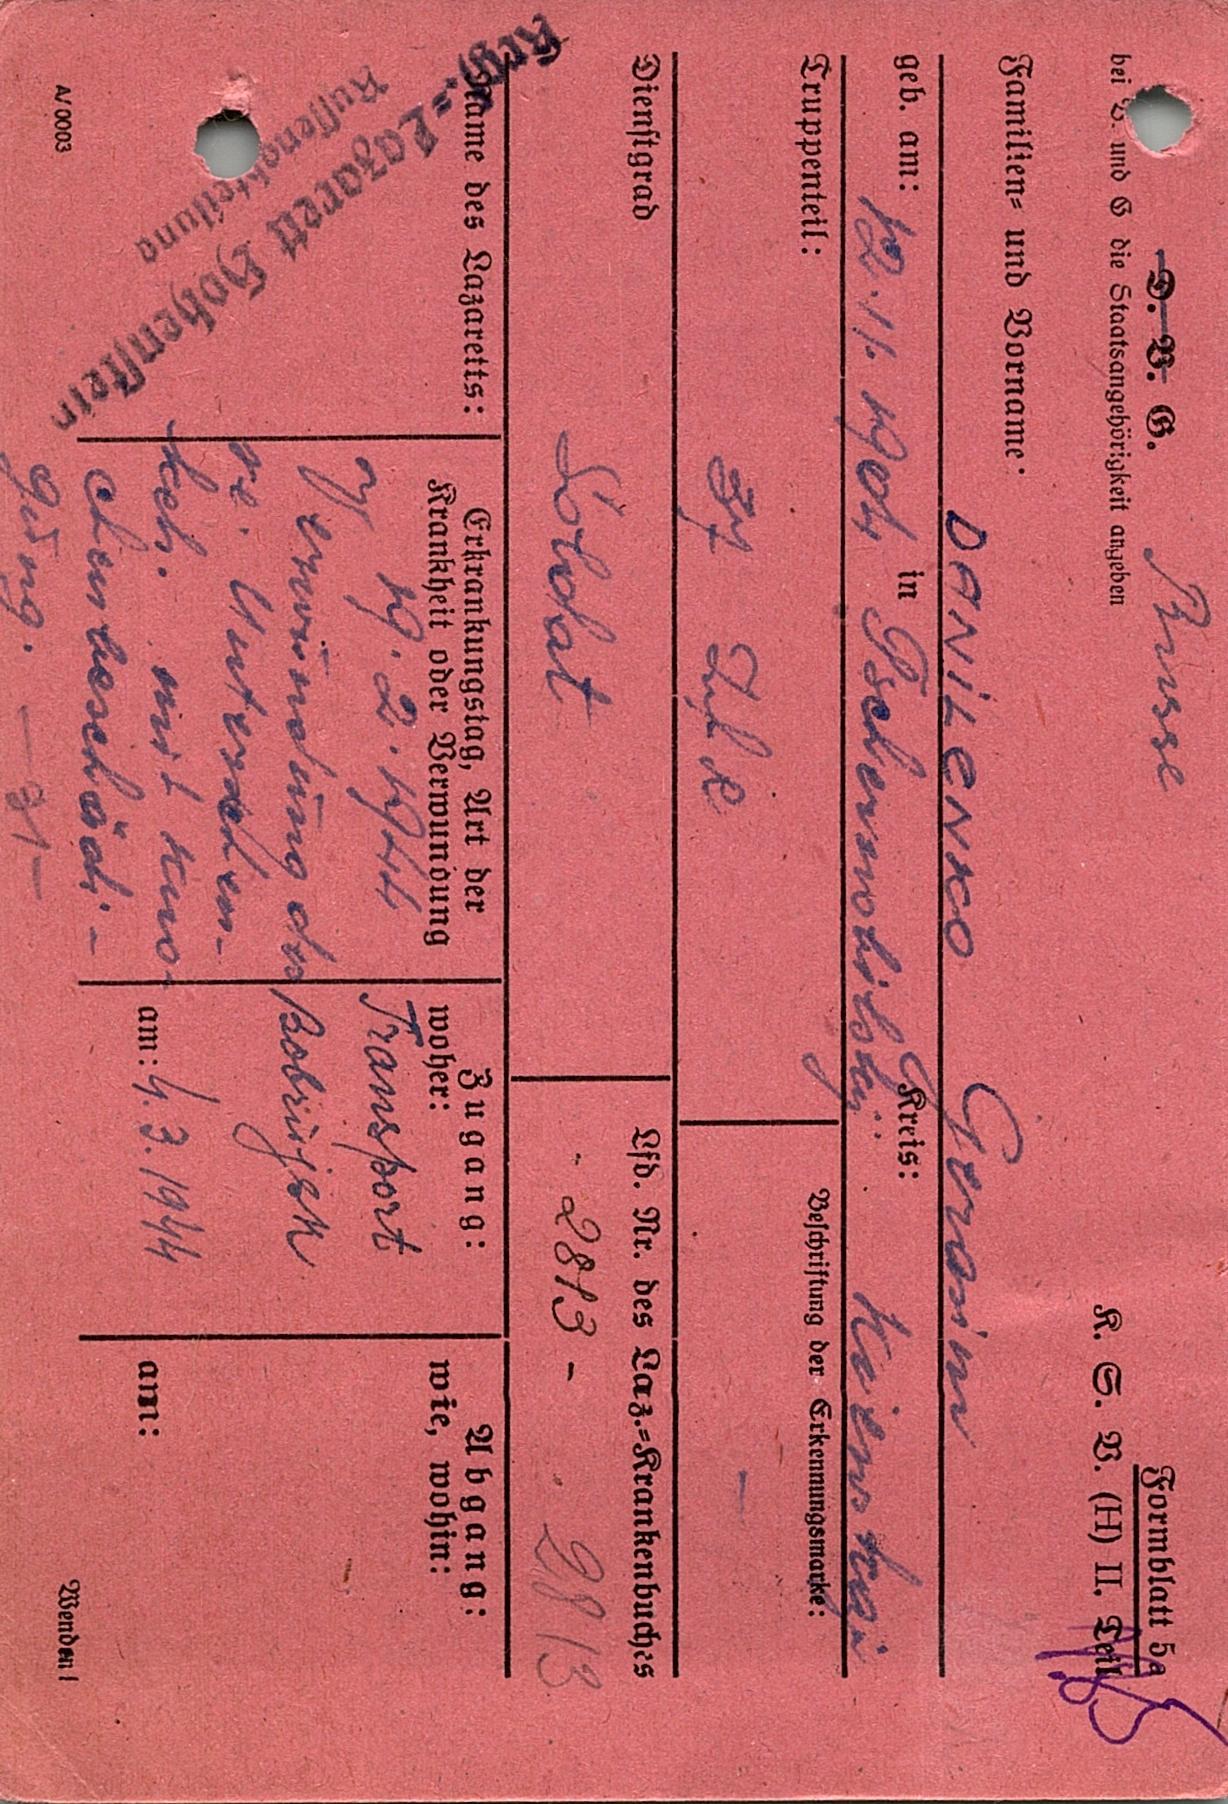 D. V. G. Russe
bei V. und G die Staatsangehörigkeit angeben
Formblatt 5a
K. S. V. (H) II. Teil
Familien= und Vorname:
DANiLENKO Gerasim
geb. am: 12.11.1904 in Kreis:
Truppenteil:
Beschriftung der Erkennungsmarke:
37 –
Dienstgrad
Soldat
Lfd. Nr. des Laz.=Krankenbuches
2813 - 2813
Name des Lazaretts:
Krgf.=Lazarett Hohenstein
Russenabteilung
Erkrankungstag, Art der
Krankheit oder Verwundung
19.2.1944
Verwundung des
re. Unterschen-
kels mit Kno-
chenbeschädi-
gung. – 31 –
Zugang:
woher:
Transport
Bobrujsk
am: 4.3.1944
Abgang:
wie, wohin:
am:
A/0003
Wenden!